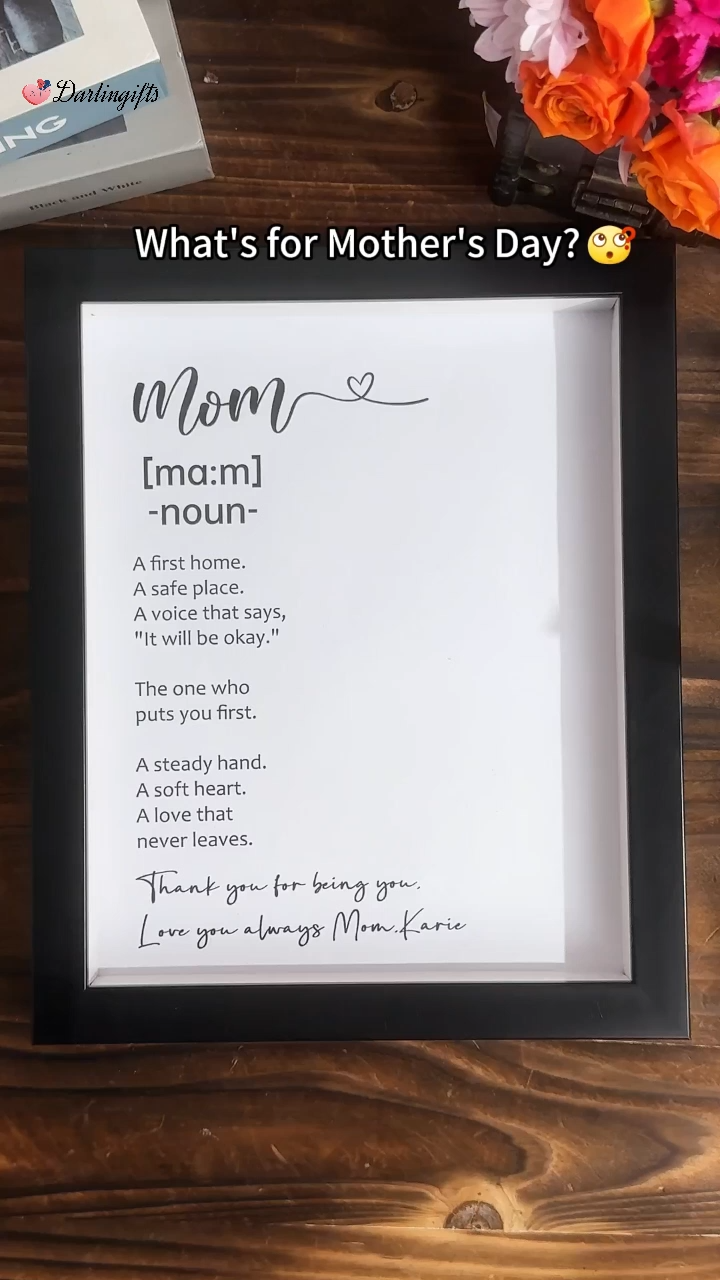 Darlingifts
ING
Black and White
What's for Mother's Day?
Mom
[ma:m]
-noun-
A first home.
A safe place.
A voice that says,
"It will be okay."
The one who
puts you first.
A steady hand.
A soft heart.
A love that
never leaves.
Thank you for being you.
Love you always Mom.Karie